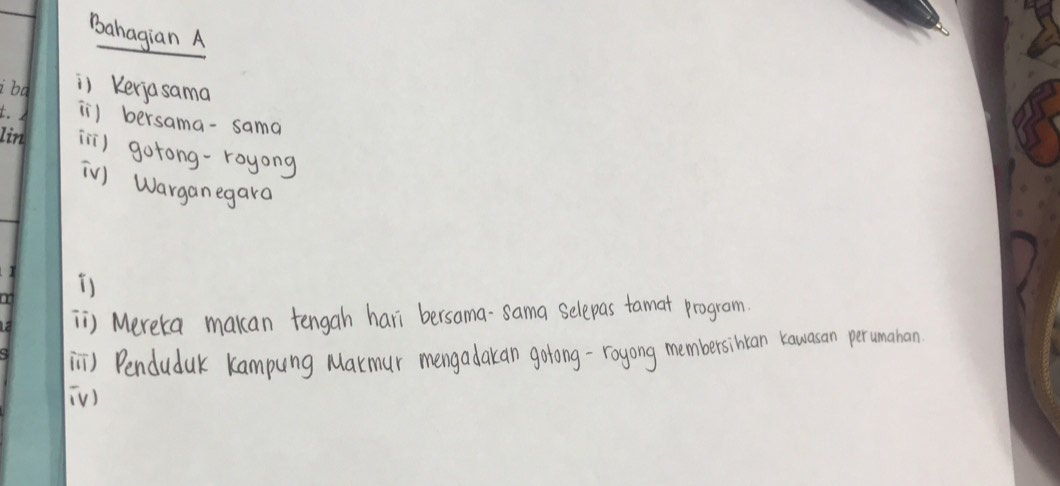 Bahagian A
i) Kerjasama
ii) bersama - sama
iii) gotong - royong
iv) Warganegara
i)
ii) Mereka makan tengah hari bersama - sama selepas tamat program.
iii) Penduduk Kampung Makmur mengadakan gotong - royong membersihkan kawasan perumahan.
iv)